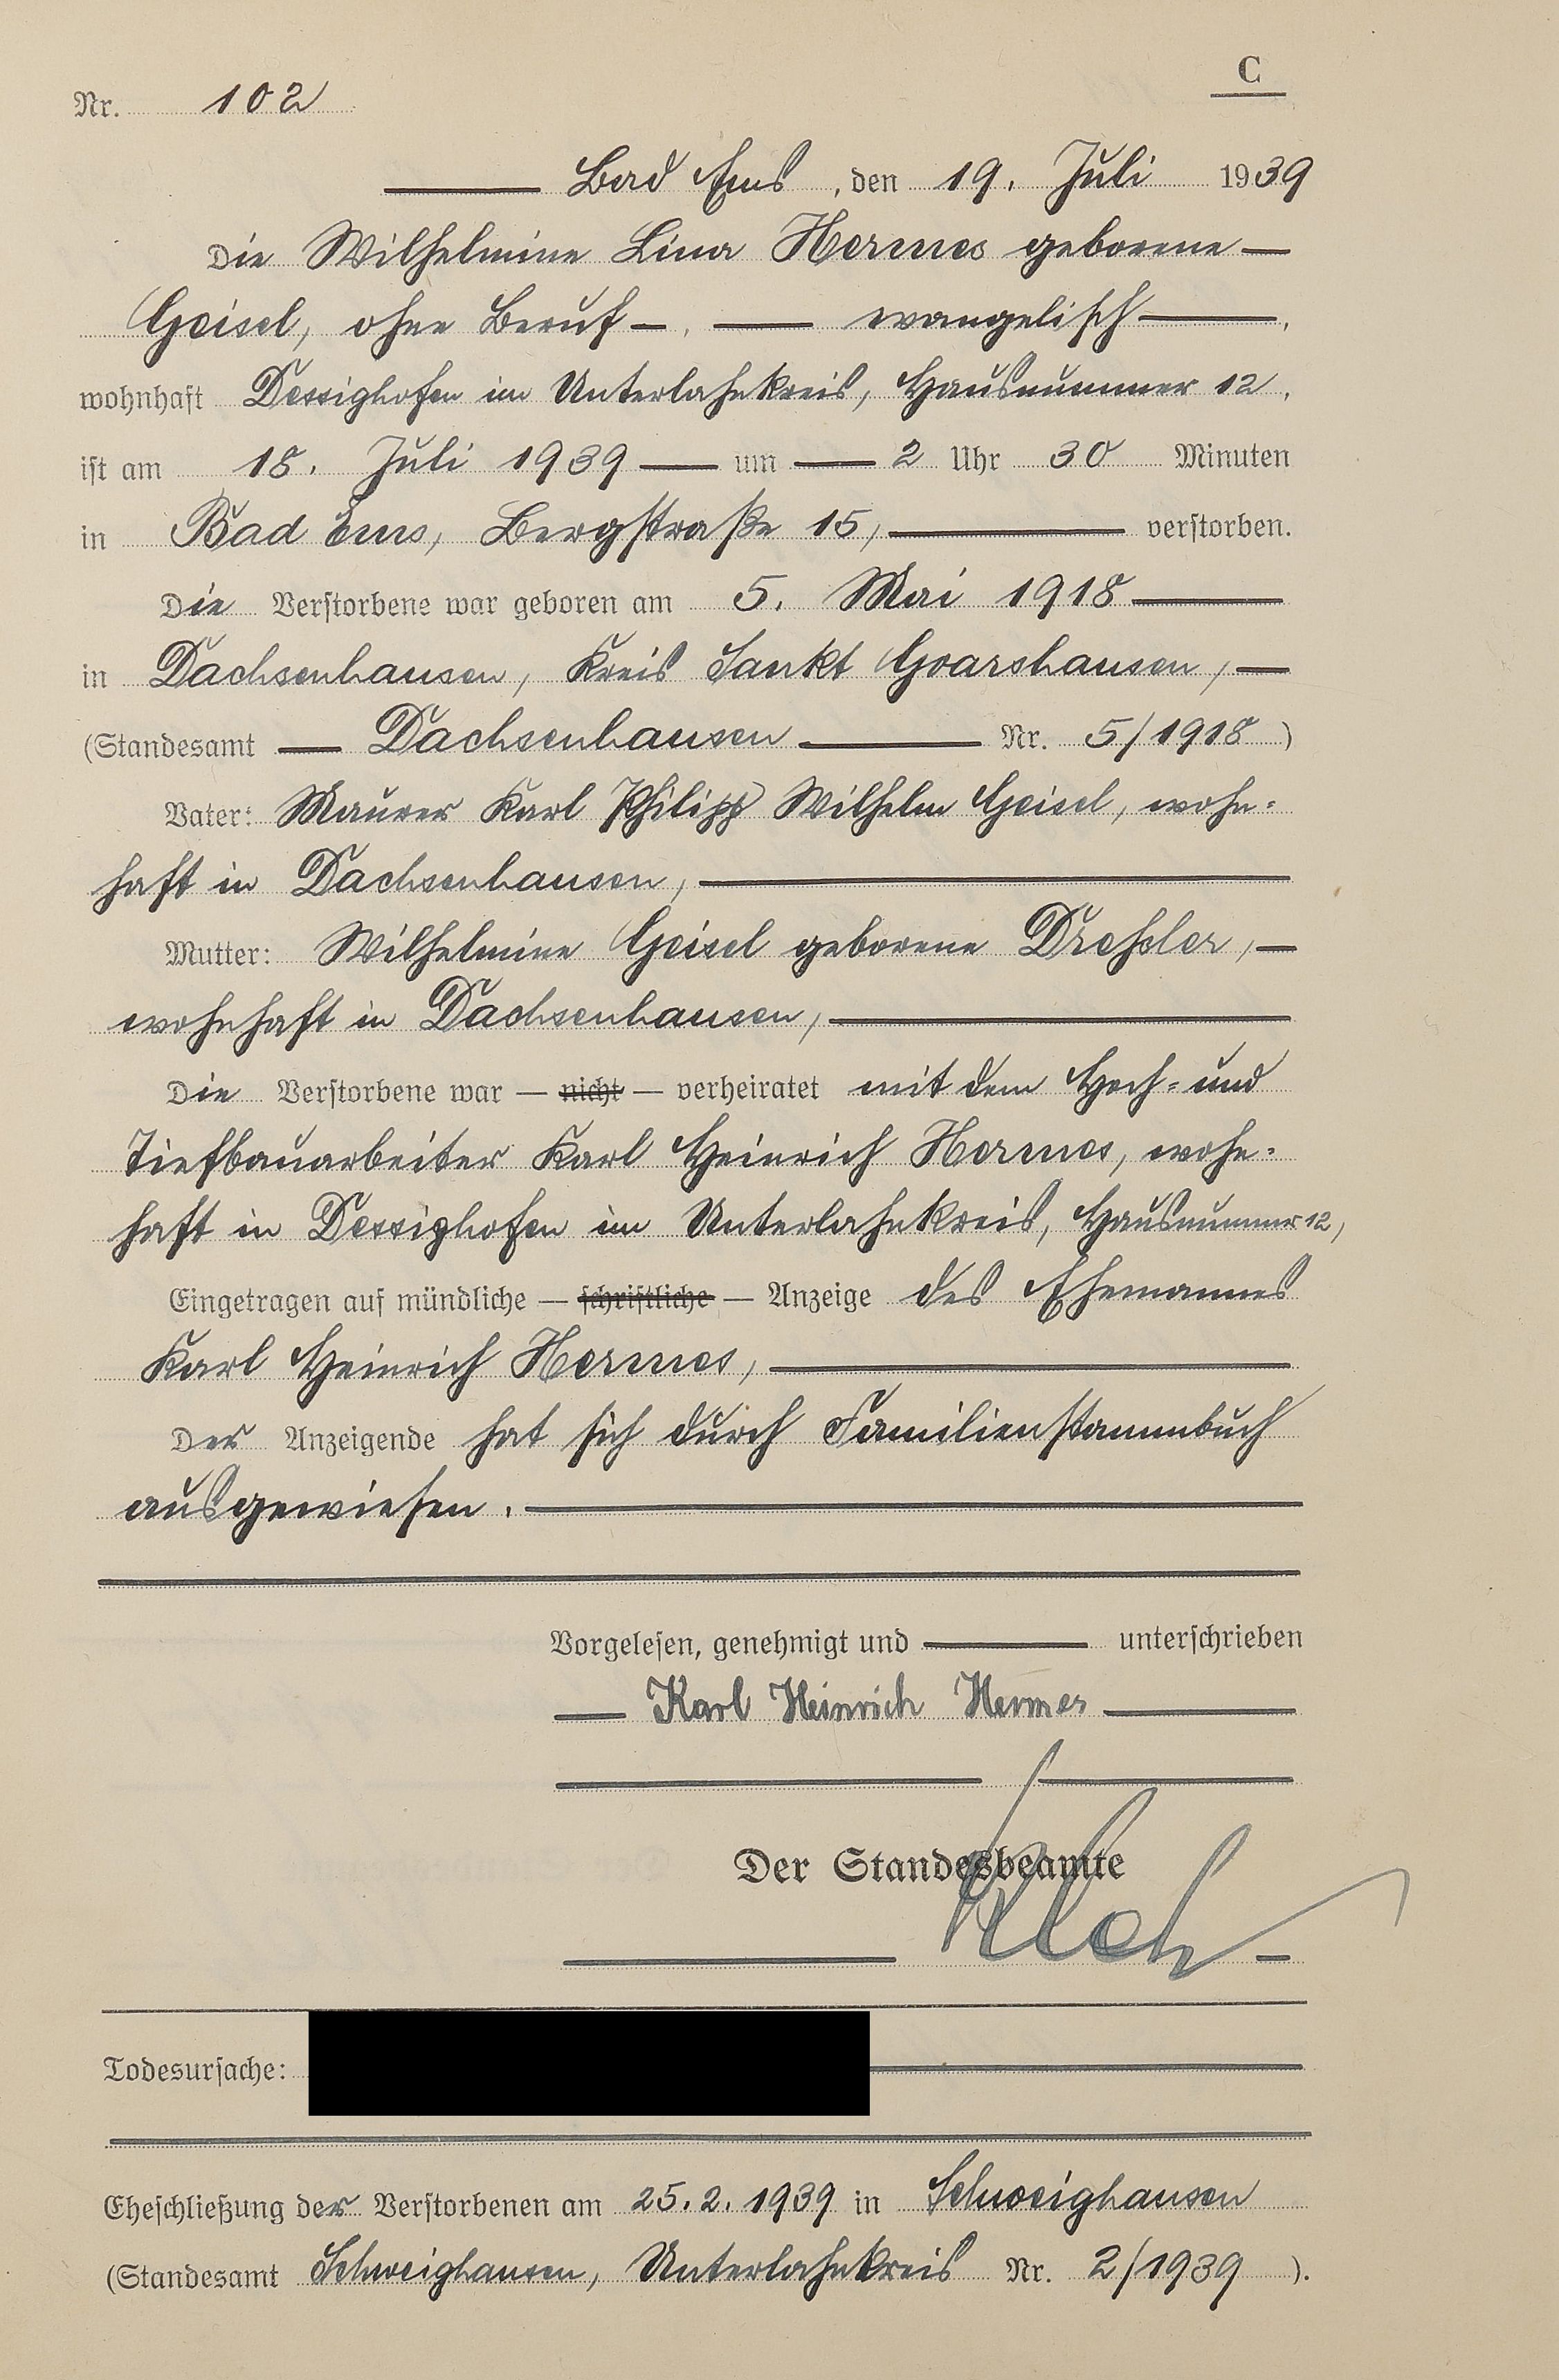 C
Nr. 102
Bad Ems, den 19. Juli 1939
Die Wilhelmine Lina Hermes geborene
Geisel, ohne Beruf, evangelisch,
wohnhaft Dessighofen im Unterlahnkreis, Hausnummer 12,
ist am 18. Juli 1939 um 2 Uhr 30 Minuten
in Bad Ems, Bergstraße 15, verstorben.
Die Verstorbene war geboren am 5. Mai 1918
in Dachsenhausen, Kreis Sankt Goarshausen,
(Standesamt Dachsenhausen Nr. 5/1918)
Vater: Maurer Karl Philipp Wilhelm Geisel, wohn-
haft in Dachsenhausen,
Mutter: Wilhelmine Geisel geborene Drehsler,
wohnhaft in Dachsenhausen,
Die Verstorbene war — nicht — verheiratet mit dem Hoch- und
Tiefbauarbeiter Karl Heinrich Hermes, wohn-
haft in Dessighofen im Unterlahnkreis, Hausnummer 12,
Eingetragen auf mündliche — schriftliche — Anzeige des Ehemannes
Karl Heinrich Hermes,
Der Anzeigende hat sich durch Familienstammbuch
ausgewiesen.
Vorgelesen, genehmigt und unterschrieben
Karl Heinrich Hermes
Der Standesbeamte
Todesursache:
Eheschließung der Verstorbenen am 25.2.1939 in Schweighausen
(Standesamt Schweighausen, Unterlahnkreis Nr. 2/1939).